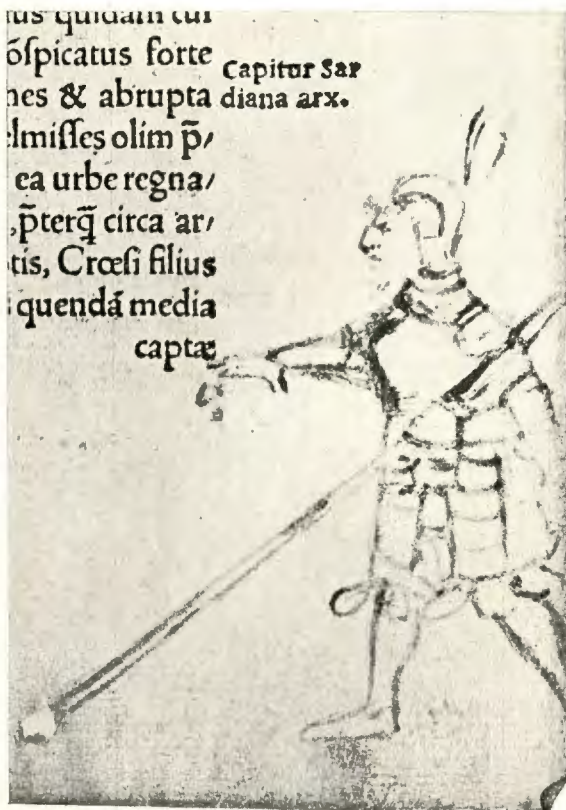 quidam cui
õſpicatus forte
nes & abrupta
elmiſſes olim p̃/
ea urbe regna/
,p̃terq̃ circa ar/
tis, Crœſi filius
quendã media
captæ
Capitur Sar
diana arx.